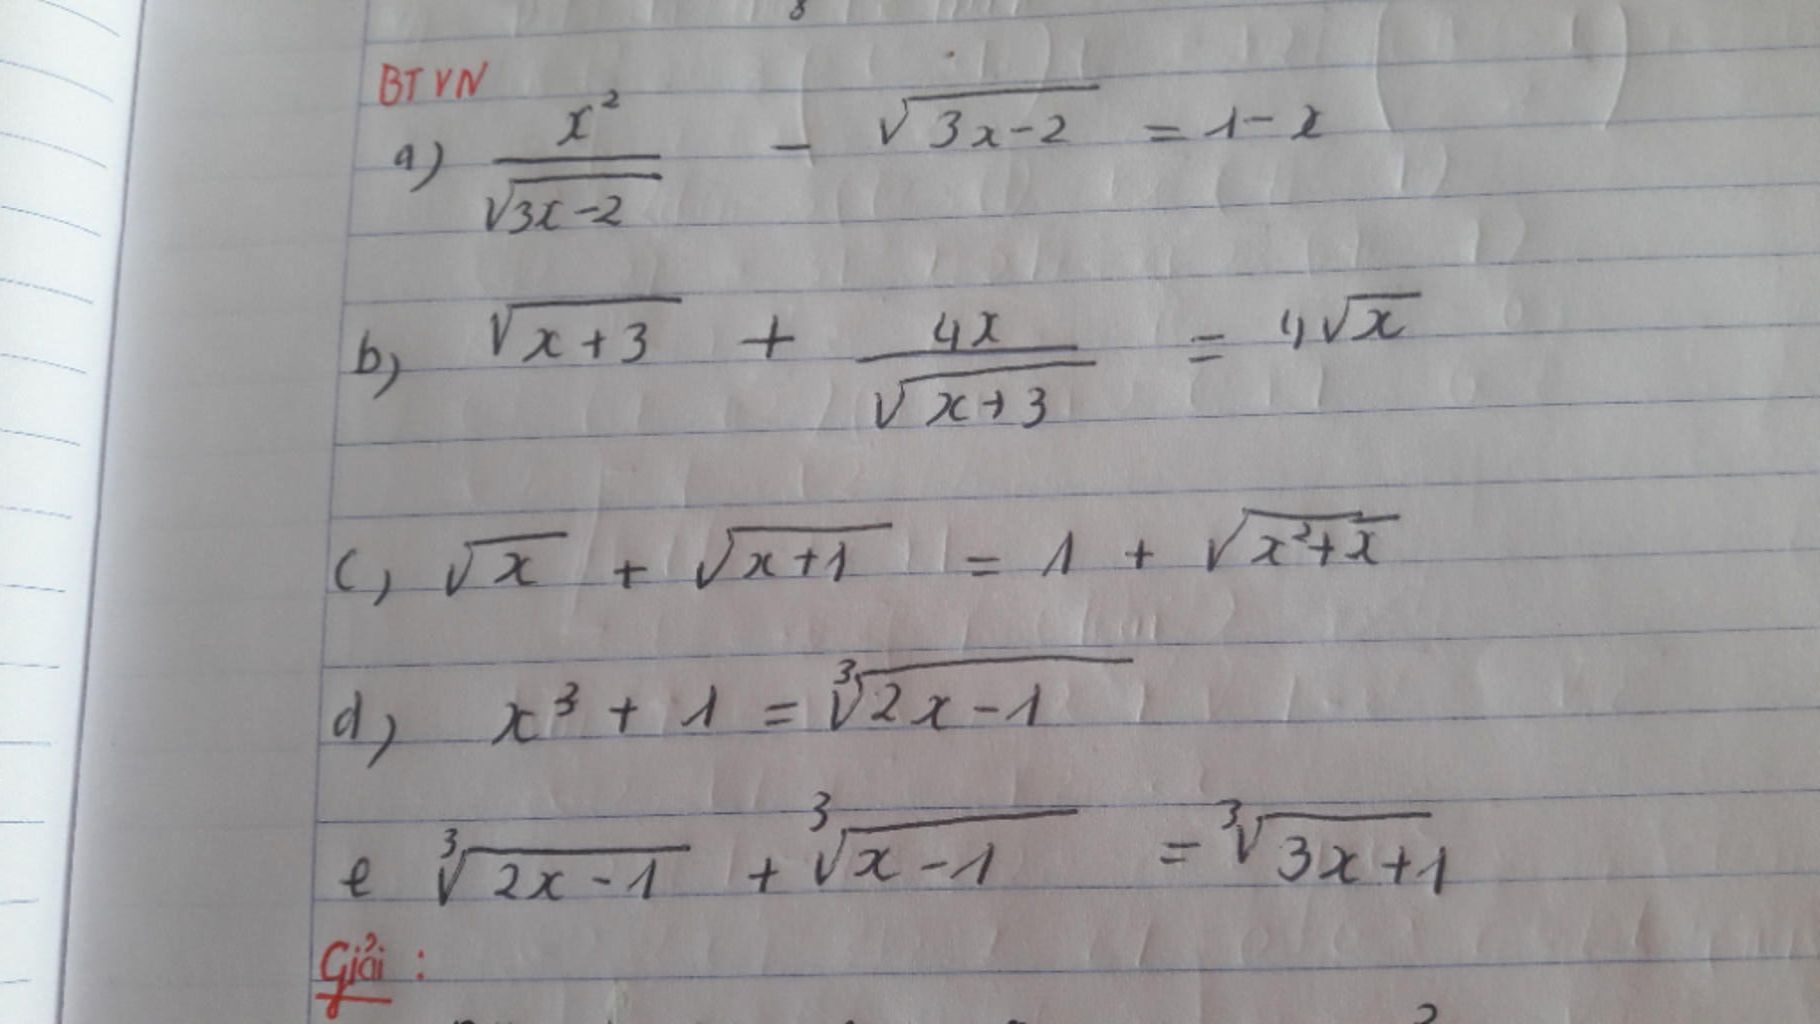 BTVN
a) x² / √(3x-2) - √(3x-2) = 1-x
b) √(x+3) + 4x / √(x+3) = 4√x
c) √x + √(x+1) = 1 + √(x²+x)
d) x³ + 1 = ³√(2x-1)
e ³√(2x-1) + ³√(x-1) = ³√(3x+1)
Giải :